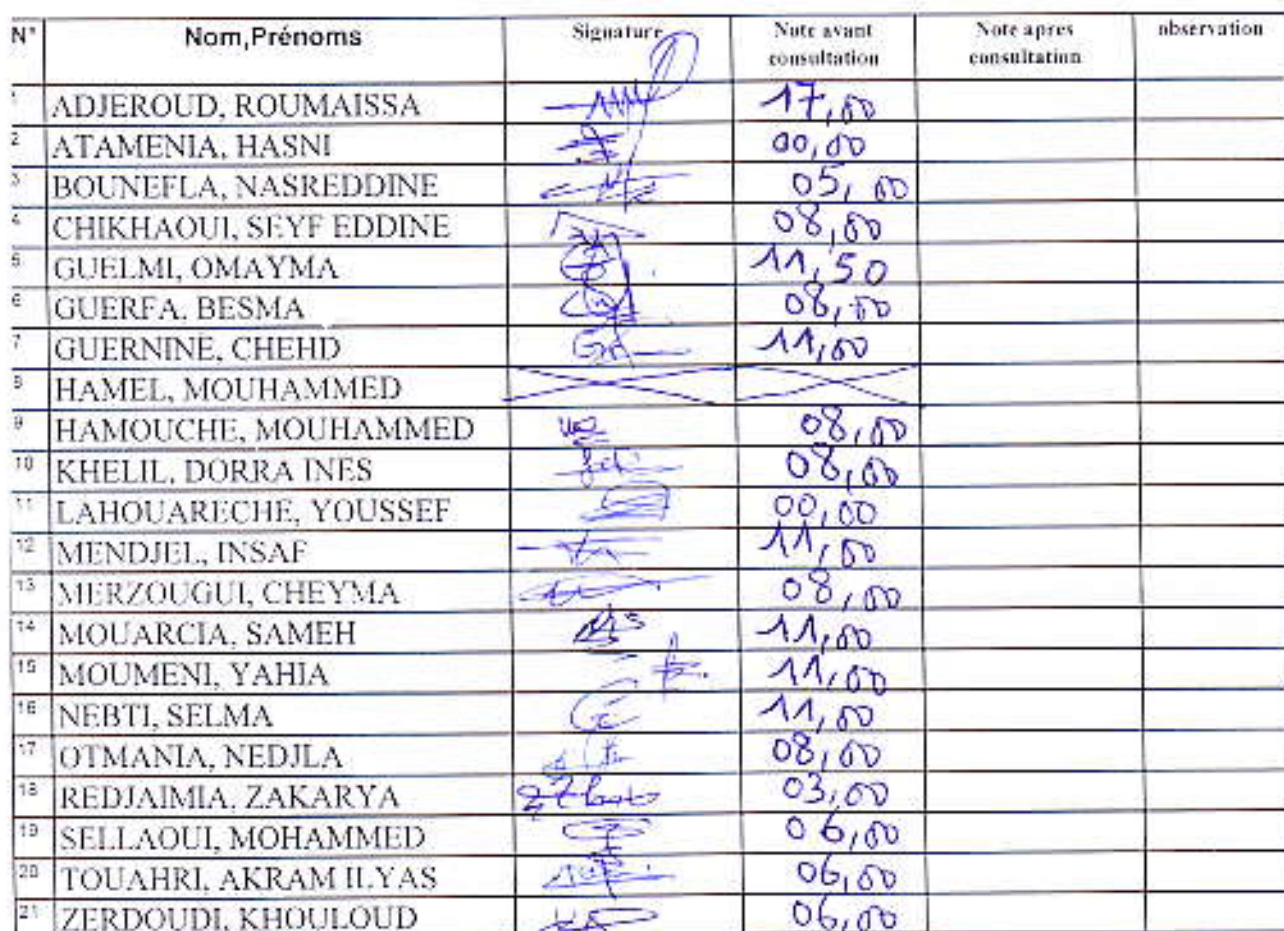 N° Nom,Prénoms Signature Note avant consultation Note apres consultation observation
1 ADJEROUD, ROUMAISSA 17,00
2 ATAMENIA, HASNI 00,00
3 BOUNEFLA, NASREDDINE 05,00
4 CHIKHAOUI, SEYF EDDINE 08,00
5 GUELMI, OMAYMA 11,50
6 GUERFA, BESMA 08,00
7 GUERNINE, CHEHD 11,00
8 HAMEL, MOUHAMMED
9 HAMOUCHE, MOUHAMMED 08,00
10 KHELIL, DORRA INES 08,00
11 LAHOUARECHE, YOUSSEF 00,00
12 MENDJEL, INSAF 11,00
13 MERZOUGUI, CHEYMA 08,00
14 MOUARCIA, SAMEH 11,00
15 MOUMENI, YAHIA 11,00
16 NEBTI, SELMA 11,00
17 OTMANIA, NEDJLA 08,00
18 REDJAIMIA, ZAKARYA 03,00
19 SELLAOUI, MOHAMMED 06,00
20 TOUAHRI, AKRAM ILYAS 06,00
21 ZERDOUDI, KHOULOUD 06,00